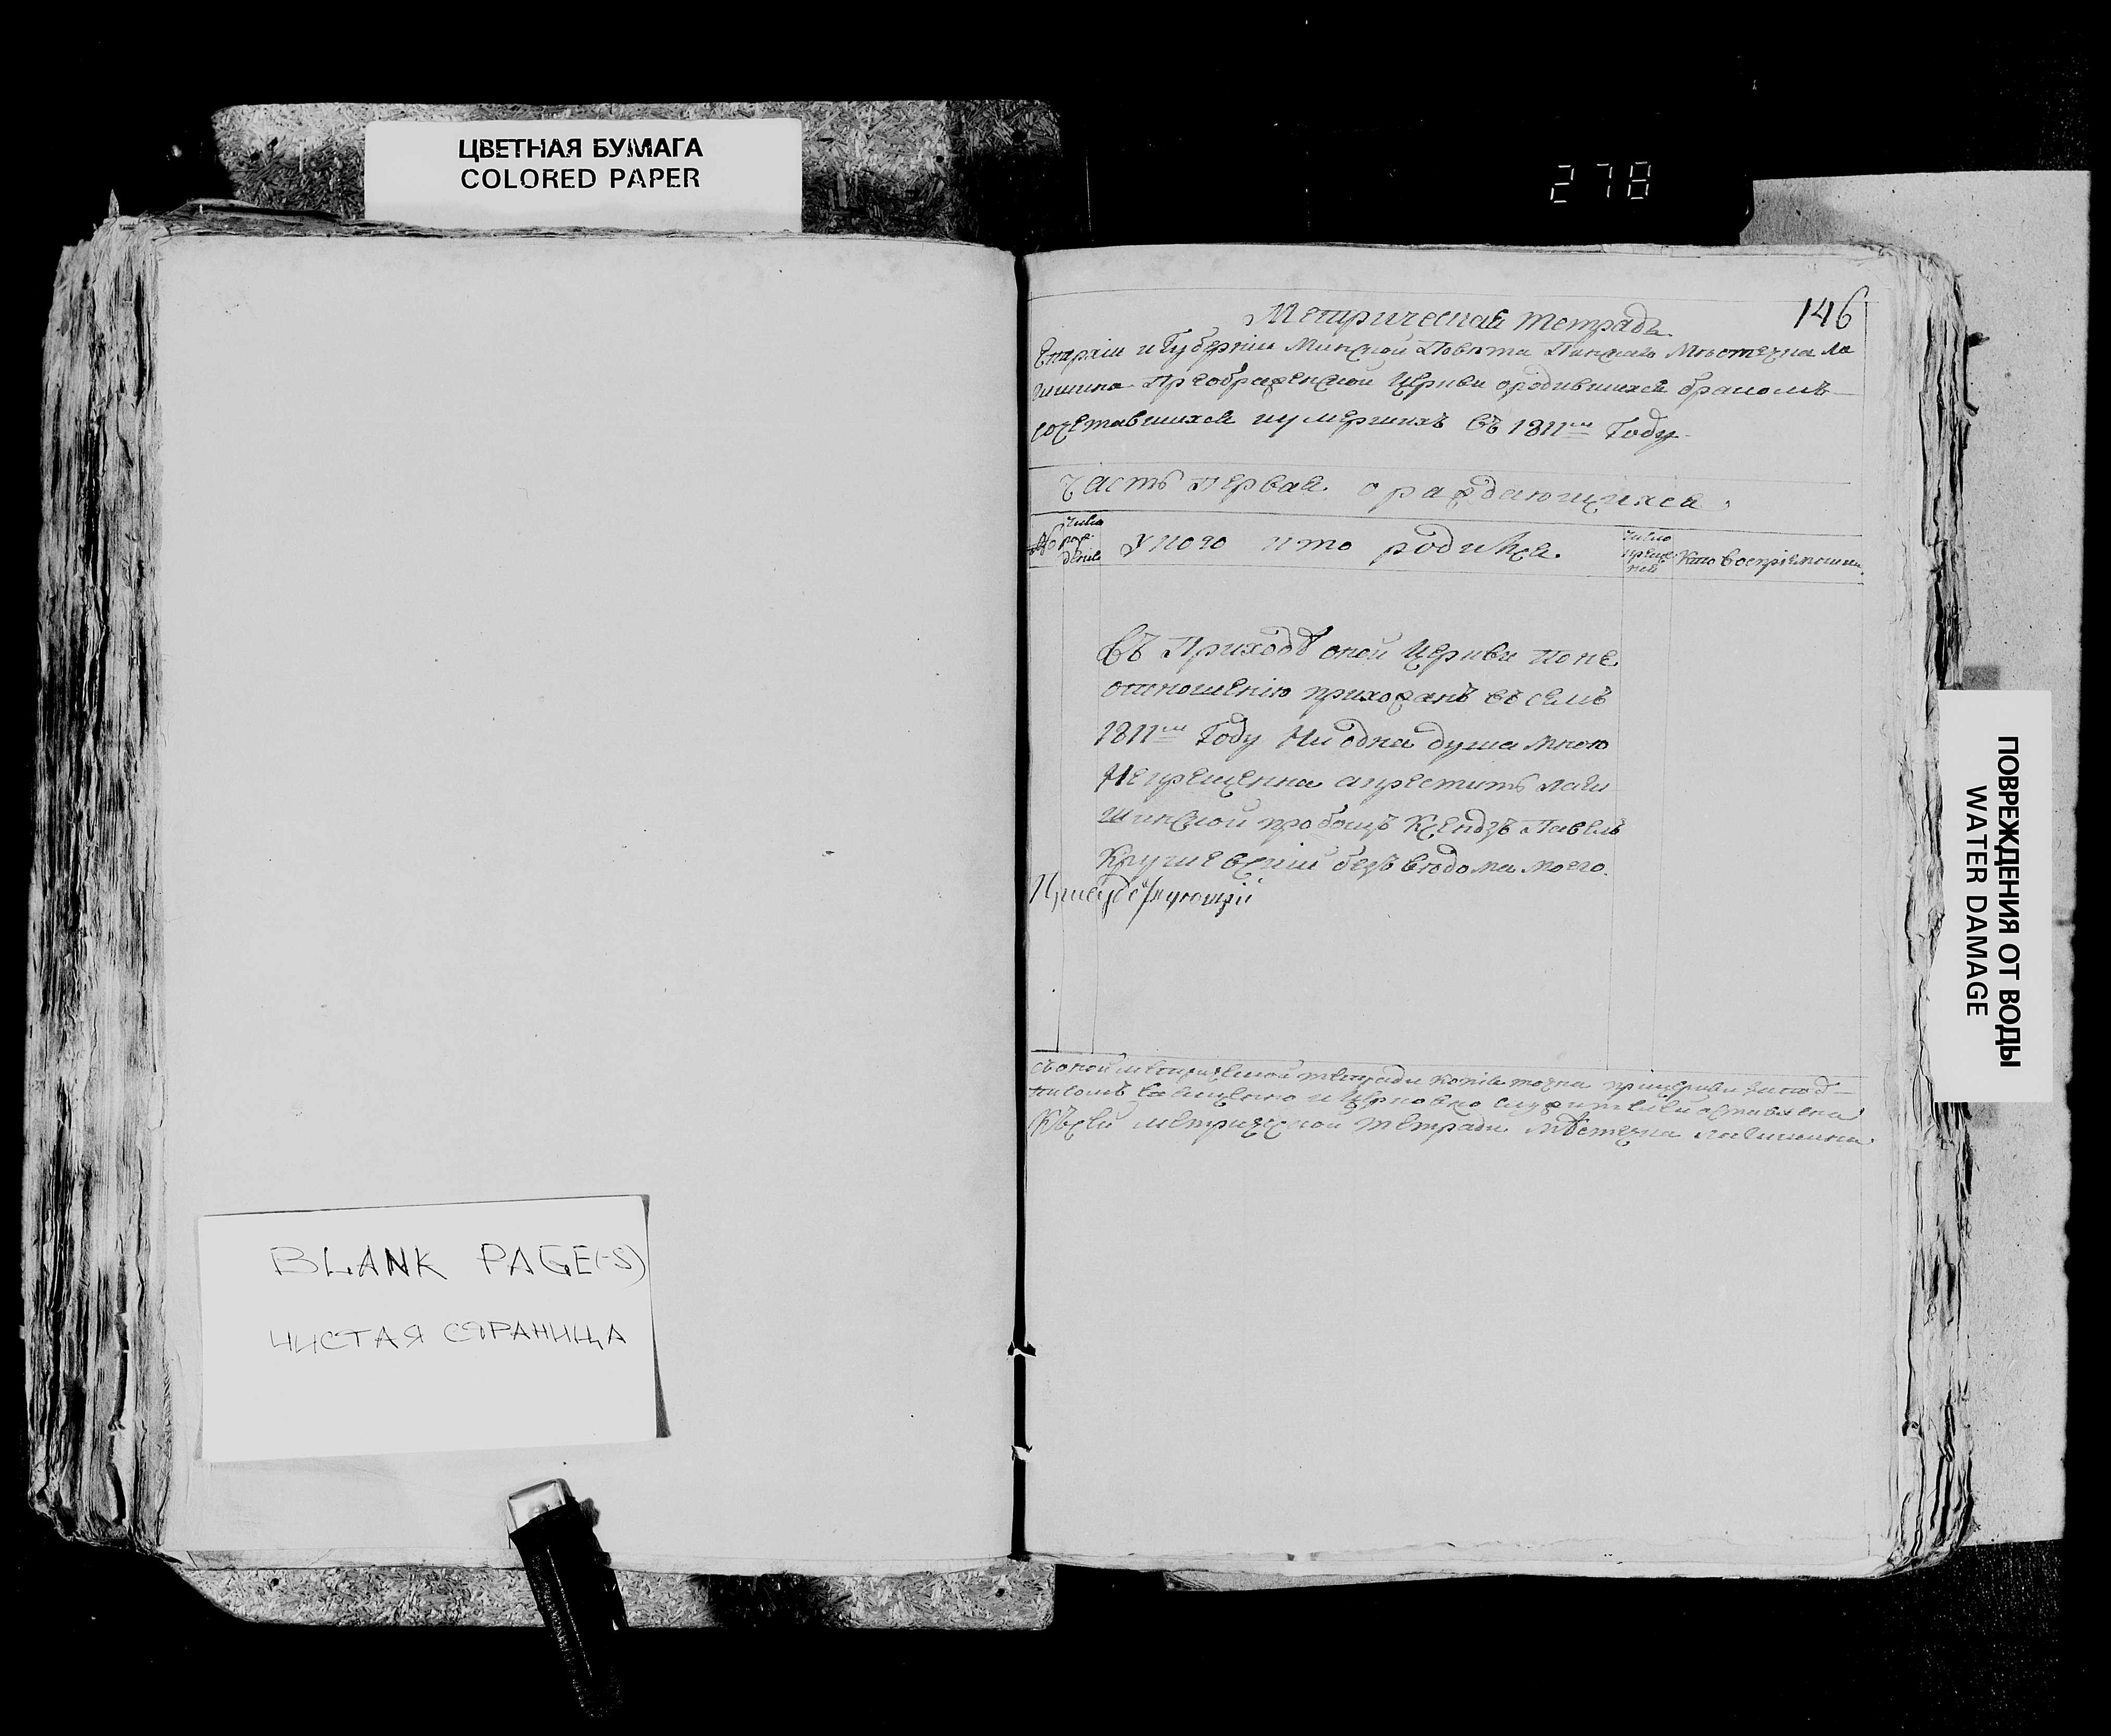 ЦВЕТНАЯ БУМАГА
COLORED PAPER
278
146
Метрическая тетрадь
Епархіи и Губерніи Минской Повѣта Пинскаго Мѣстечка Ло
гишина Преображенской Церкви ородившихся бракомъ
сочетавшихся иумершихъ въ 1811мъ Году
Часть первая о раждающихся.
№
число рож-
денія
У кого кто родился.
число
креще
нія
Кто воспріемники
Въ Приходѣ оной Церкви по не
отношенію прихожанъ въ семъ
1811мъ Году Ни одна душа мною
Некрещенна а креститъ логи
шинской пробощъ Ксендзъ Павелъ
Крушевскій безъ вѣдома моего.
съ оной метрической тетради копія точна при церкви за под-
писомъ священно и церковно служителей оставлена
Къ сей метрической тетради мѣстечка Логишина
BLANK PAGE(-S)
ЧИСТАЯ СТРАНИЦА
ПОВРЕЖДЕНИЯ ОТ ВОДЫ
WATER DAMAGE